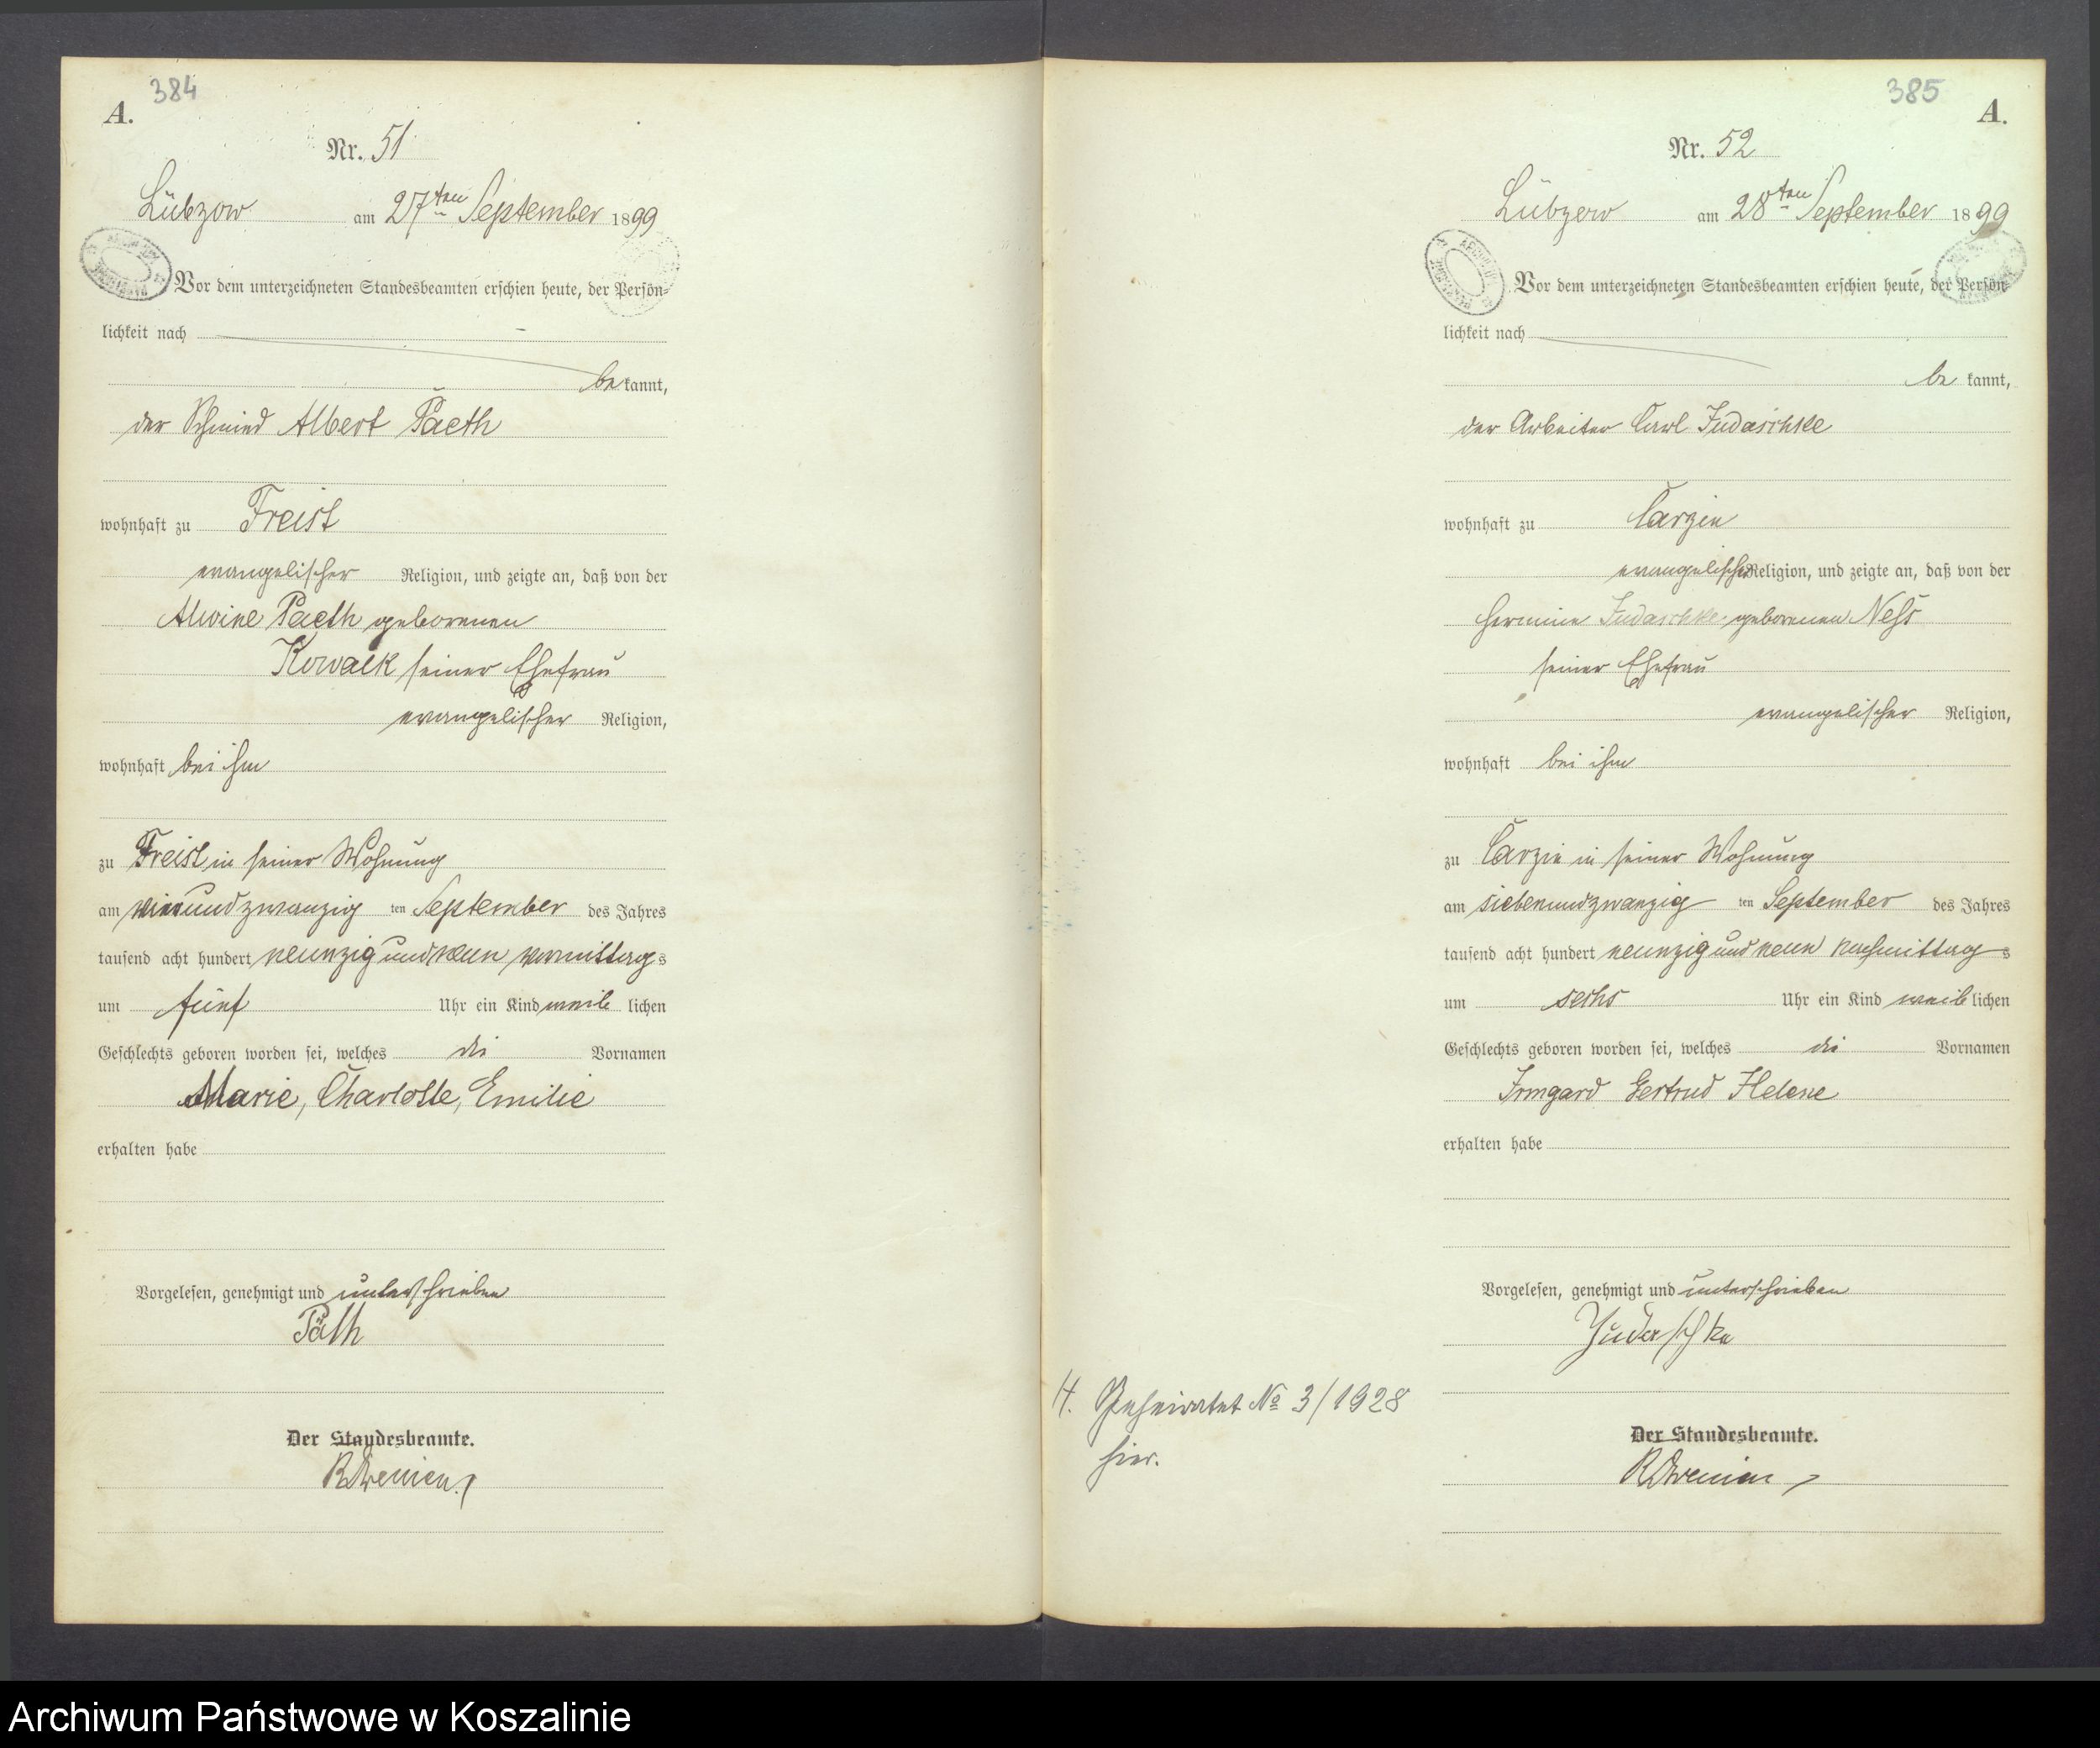 384
A.
Nr. 51
Lübzow am 27ten September 1899
Vor dem unterzeichneten Standesbeamten erschien heute, der Persön-
lichkeit nach
be kannt,
der Schmied Albert Paeth
wohnhaft zu Freist
evangelischer Religion, und zeigte an, daß von der
Alwine Paeth geborenen
Kowalk seiner Ehefrau
evangelischer Religion,
wohnhaft bei ihm
zu Freist in seiner Wohnung
am vierundzwanzig ten September des Jahres
tausend acht hundert neunzig und neun vormittag s
um fünf Uhr ein Kind weib lichen
Geschlechts geboren worden sei, welches die Vornamen
Marie, Charlotte, Emilie
erhalten habe
Vorgelesen, genehmigt und unterschrieben
Päth
Der Standesbeamte.
385
A.
Nr. 52
Lübzow am 28ten September 1899
Vor dem unterzeichneten Standesbeamten erschien heute, der Persön-
lichkeit nach
be kannt,
der Arbeiter Carl Judaschke
wohnhaft zu Carzin
evangelischer Religion, und zeigte an, daß von der
Hermine Judaschke geborenen Neß
seiner Ehefrau
evangelischer Religion,
wohnhaft bei ihm
zu Carzin in seiner Wohnung
am siebenundzwanzig ten September des Jahres
tausend acht hundert neunzig und neun nachmittag s
um sechs Uhr ein Kind weib lichen
Geschlechts geboren worden sei, welches die Vornamen
Irmgard Gertrud Helene
erhalten habe
Vorgelesen, genehmigt und unterschrieben
Judaschke
Der Standesbeamte.
H. Geheiratet No 3/1928
hier.
Archiwum Państwowe w Koszalinie